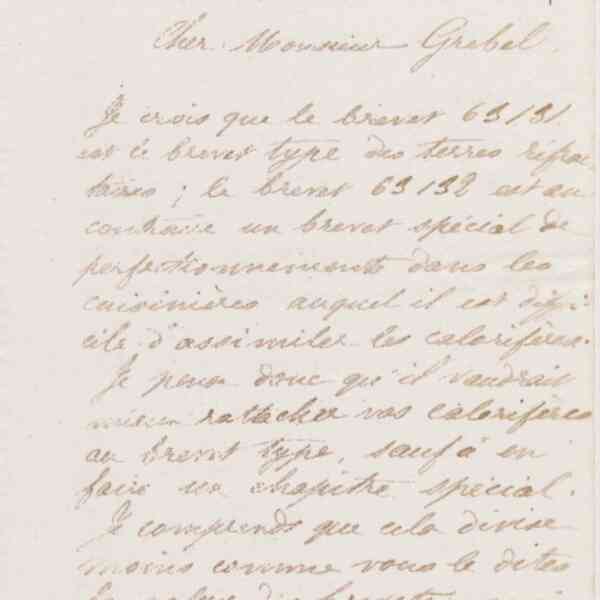 Cher Monsieur Grebel.
Je crois que le brevet 63131.
est le brevet type des terres réfrac
taires ; le brevet 63132 est au
contraire un brevet spécial de
perfectionnements dans les
cuisinières auquel il est diffi-
cile d'assimiler les calorifères.
Je pense donc qu'il vaudrait
mieux rattacher vos calorifères
au brevet type, sauf à en
faire un chapitre spécial.
Je comprends que cela divise
moins comme vous le dites